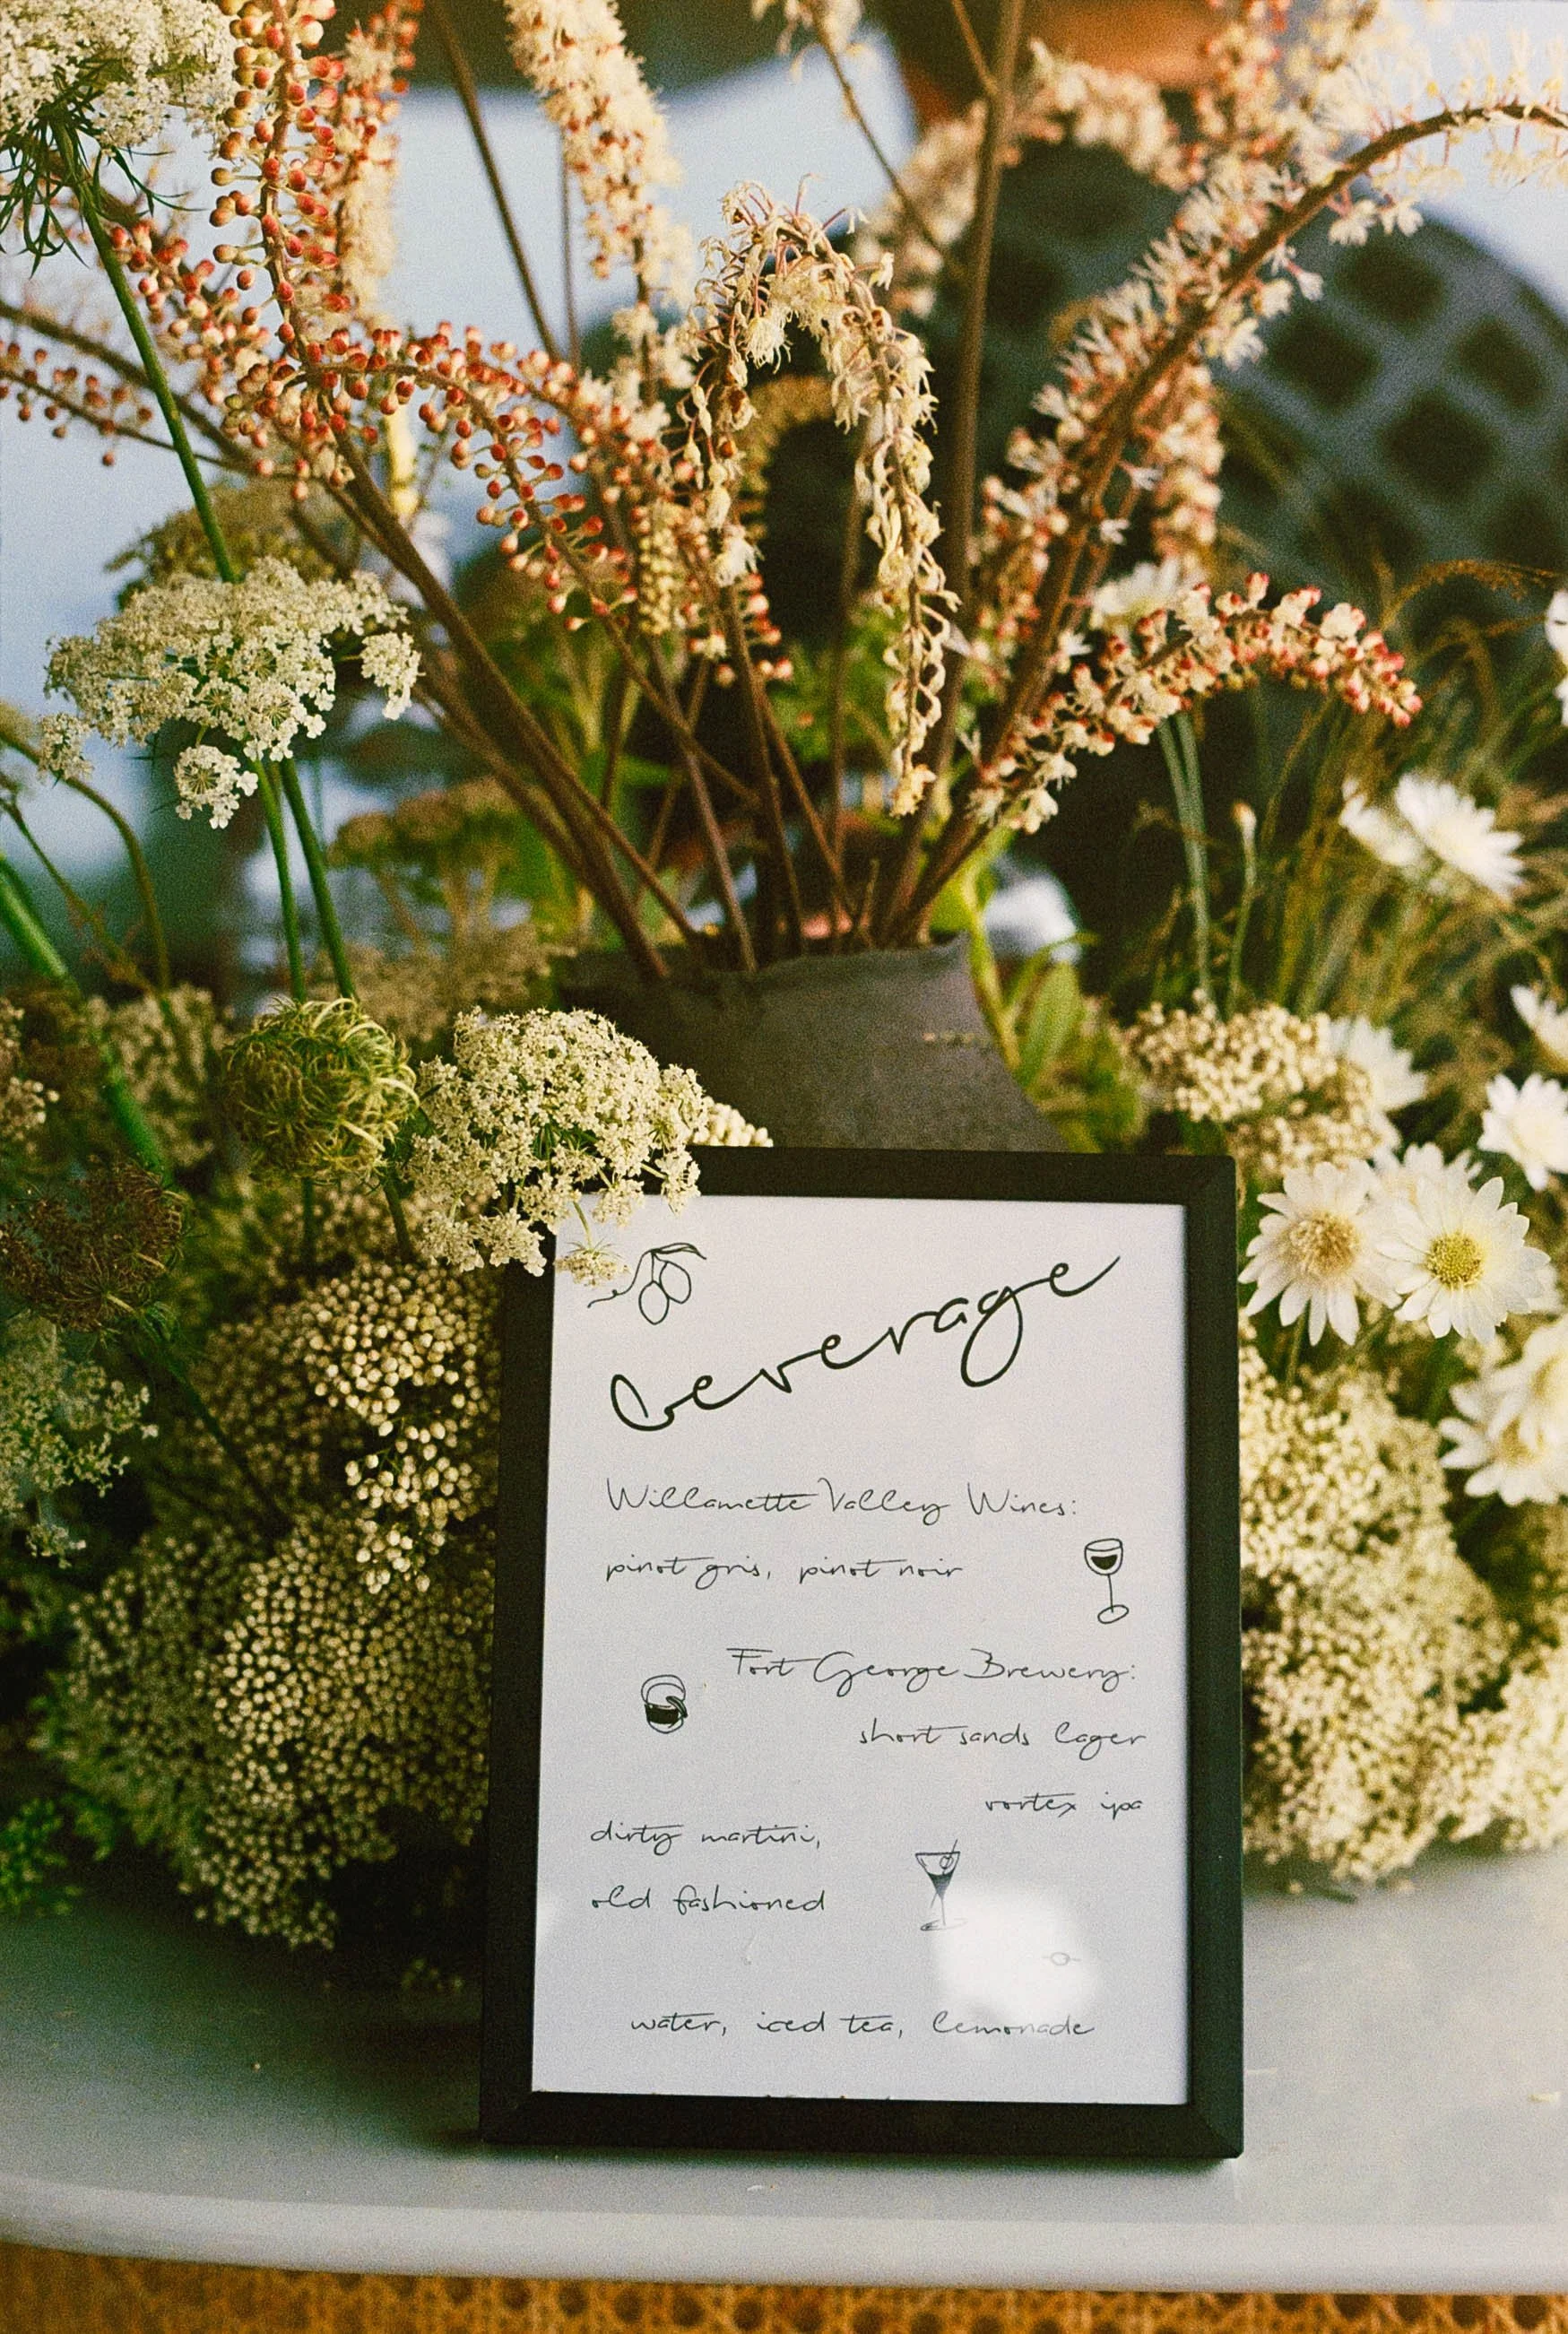 beverage
Willamette Valley Wines:
pinot gris, pinot noir
Fort George Brewery:
short sands lager
vortex ipa
dirty martini,
old fashioned
water, iced tea, lemonade